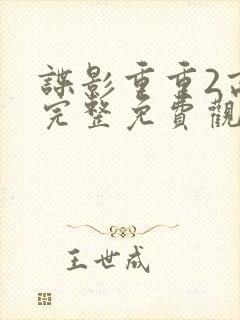 諜影重重2高
完整免費觀
王世成